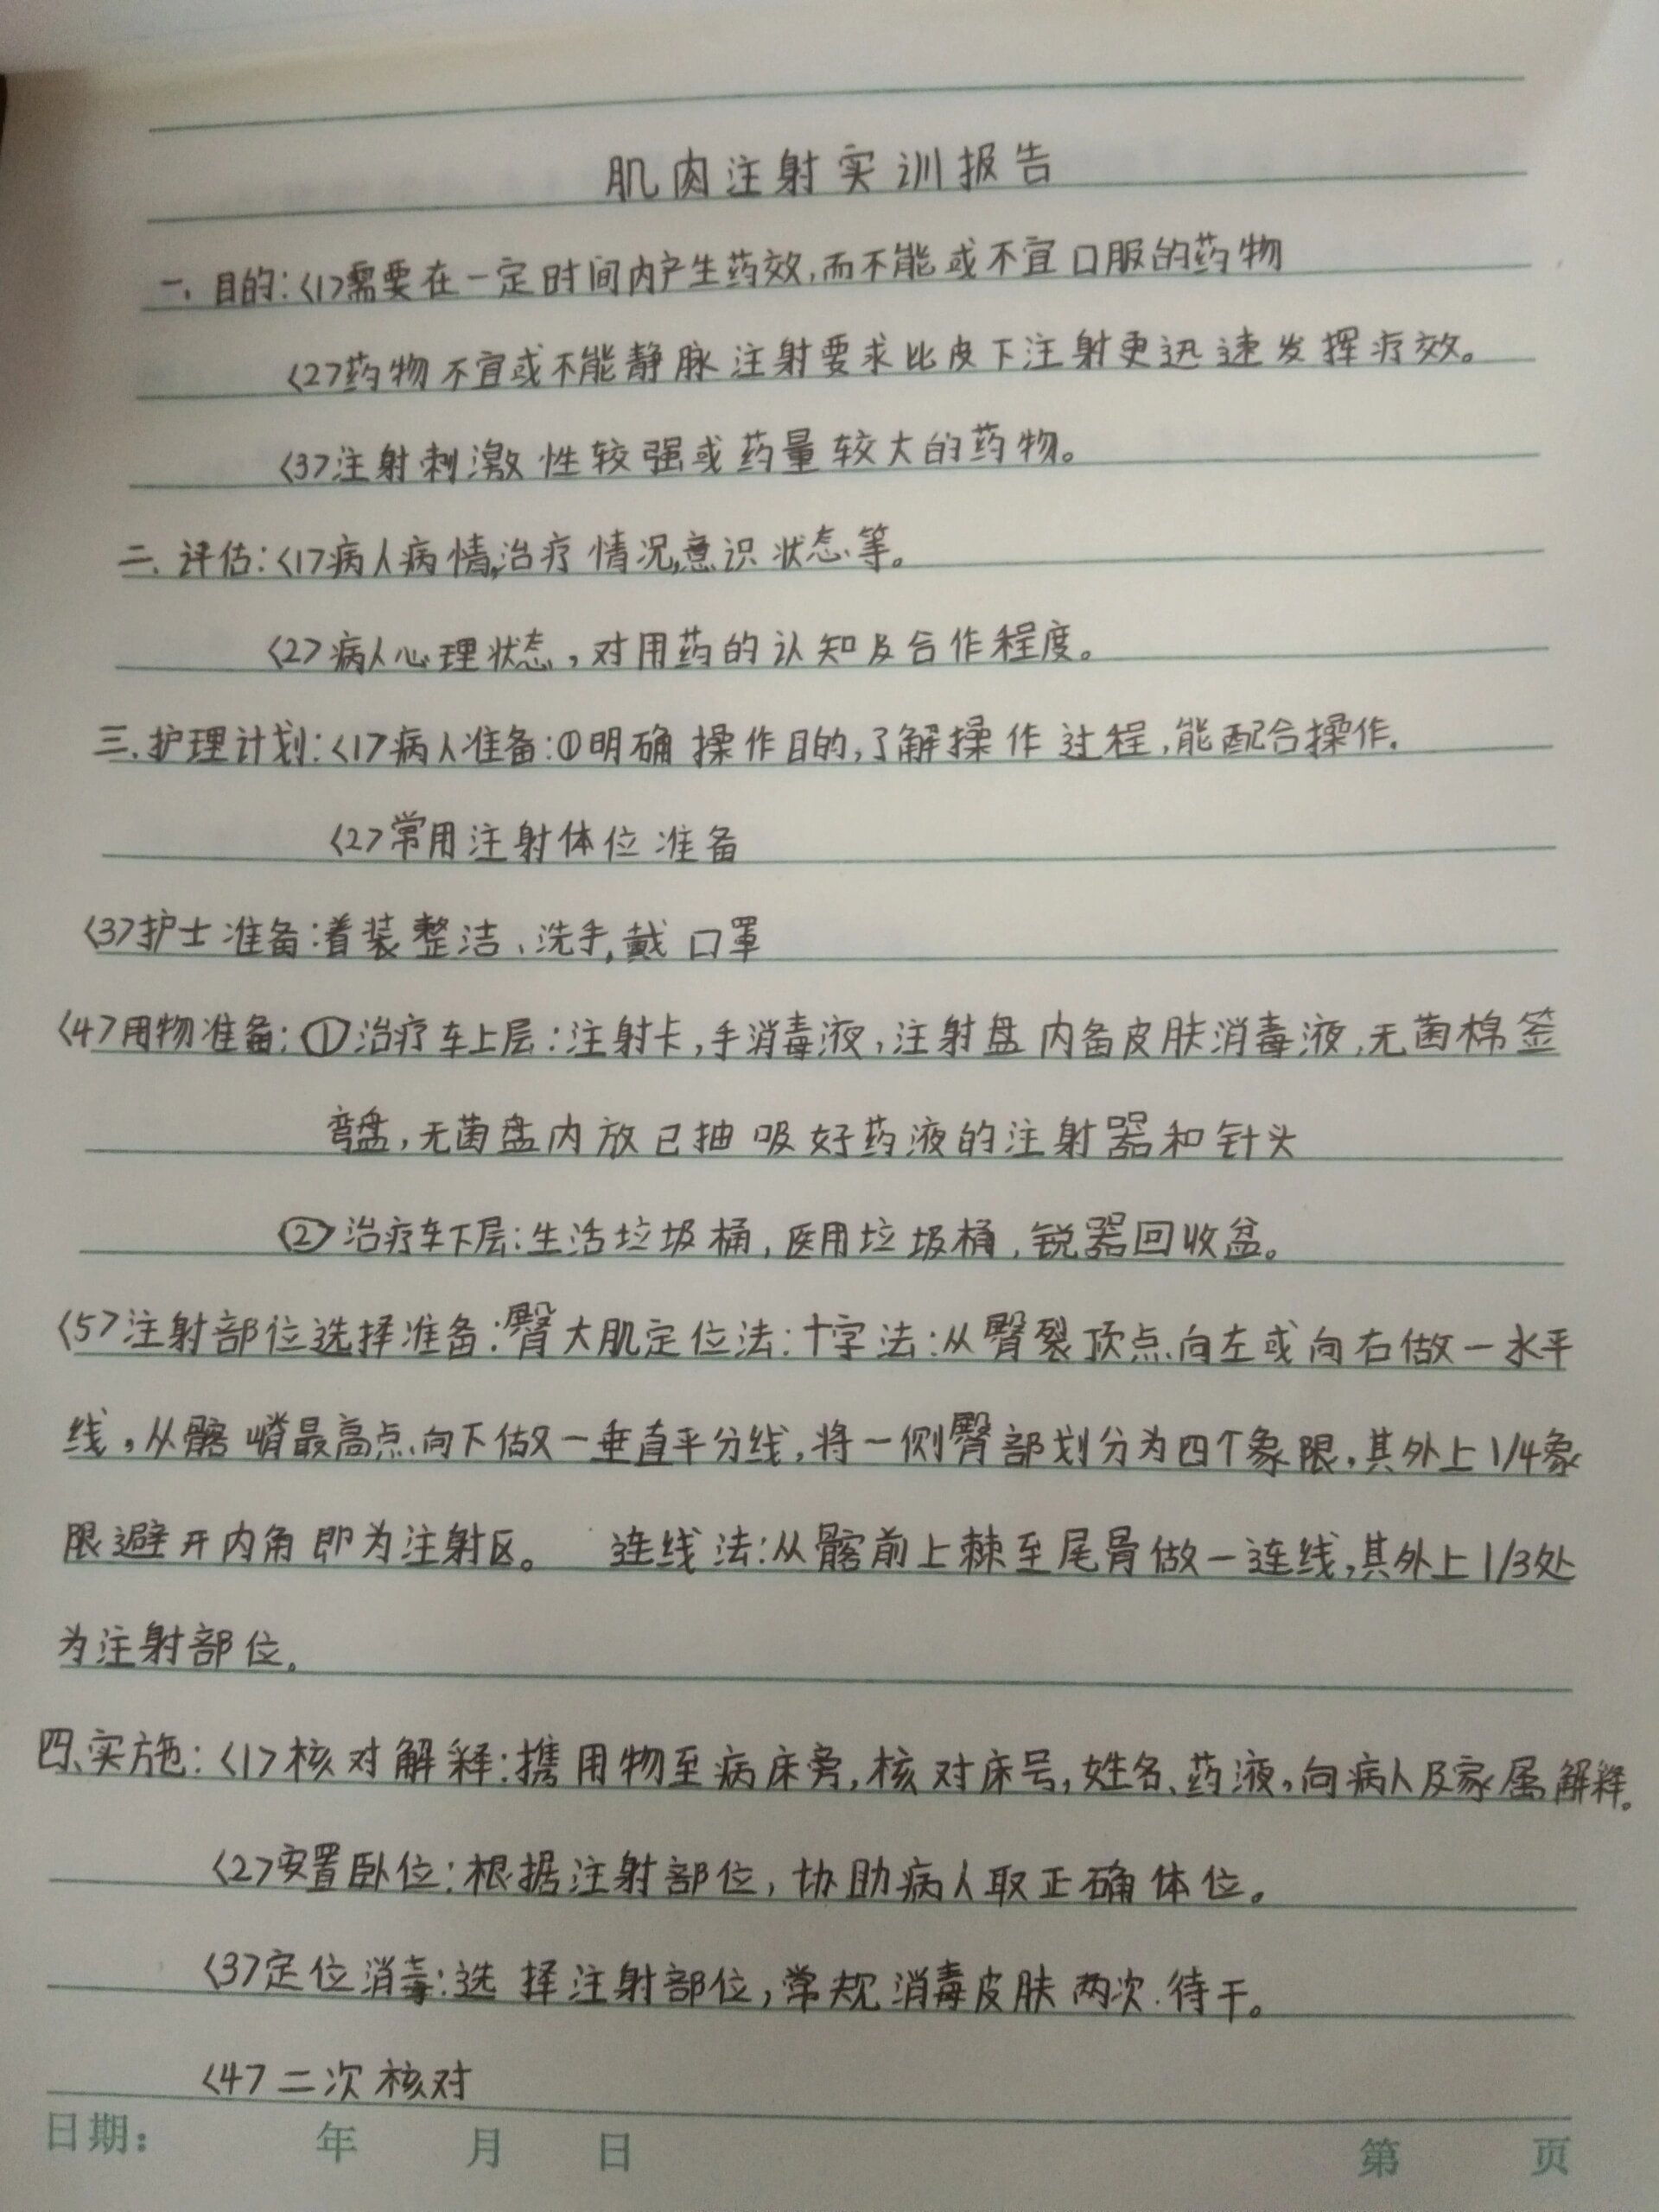 肌肉注射实训报告
一、目的:<1>需要在一定时间内产生药效,而不能或不宜口服的药物
<2>药物不宜或不能静脉注射要求比皮下注射更迅速发挥疗效。
<3>注射刺激性较强或药量较大的药物。
二、评估:<1>病人病情,治疗情况,意识状态等。
<2>病人心理状态,对用药的认知及合作程度。
三.护理计划:<1>病人准备:①明确操作目的,了解操作过程,能配合操作.
<2>常用注射体位准备
<3>护士准备:着装整洁、洗手,戴口罩
<4>用物准备:①治疗车上层:注射卡,手消毒液,注射盘内备皮肤消毒液,无菌棉签
弯盘,无菌盘内放已抽吸好药液的注射器和针头
②治疗车下层:生活垃圾桶,医用垃圾桶,锐器回收盆。
<5>注射部位选择准备:臀大肌定位法:十字法:从臀裂顶点向左或向右做一水平
线,从髂嵴最高点向下做一垂直平分线,将一侧臀部划分为四个象限,其外上1/4象
限避开内角即为注射区。 连线法:从髂前上棘至尾骨做一连线,其外上1/3处
为注射部位。
四、实施:<1>核对解释:携用物至病床旁,核对床号,姓名、药液,向病人及家属解释。
<2>安置卧位:根据注射部位,协助病人取正确体位。
<3>定位消毒:选择注射部位,常规消毒皮肤两次.待干。
<4>二次核对
日期: 年 月 日 第 页